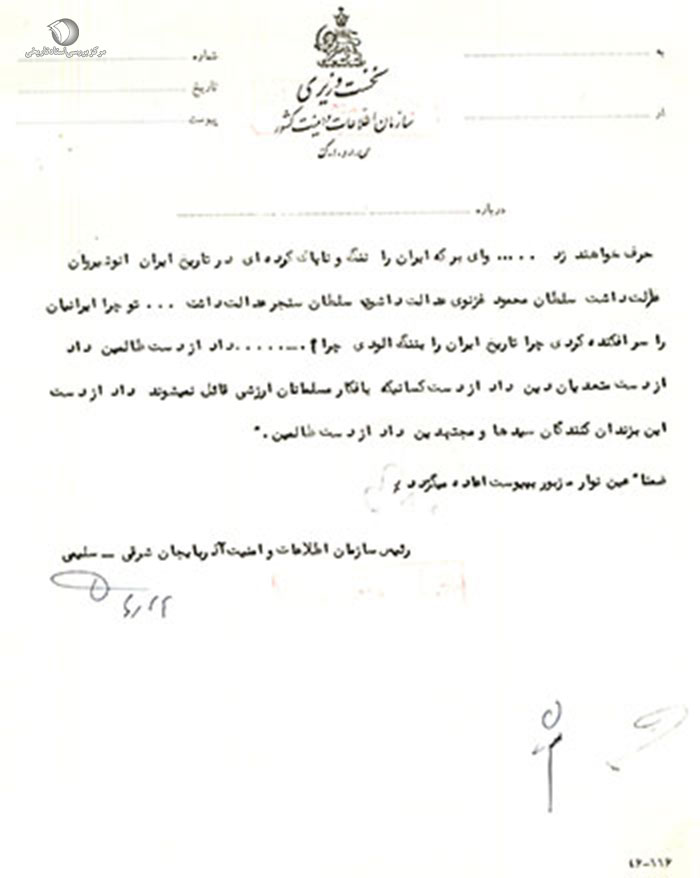 مرکز بررسی اسناد تاریخی
به
شماره
نخست وزیری
تاریخ
سازمان اطلاعات و امنیت کشور
از
پیوست
س.ا.و.ا.ک
درباره
حرف خواهند زد ..... وای بر که ایران را ننگ و ناپاک کرده ای در تاریخ ایران انوشیروان
عدالت داشت سلطان محمود غزنوی عدالت داشت سلطان سنجر عدالت داشت ... تو چرا ایرانیان
را سرافکنده کردی چرا تاریخ ایران را بننگ الودی چرا؟ ....... داد از دست ظالمین داد
از دست متعدیان دین داد از دست کسانیکه بافکار مسلمانان ارزشی قائل نمیشوند داد از دست
این بزندان کنندگان سیدها و مجتهدین داد از دست ظالمین ."
ضمنا" عین نوار مزبور بپیوست اعاده میگردد
رئیس سازمان اطلاعات و امنیت آذربایجان شرقی - سلیمی
۴۶-۱۱۶